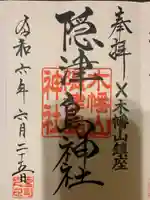 奉拝
木幡山鎮座
隠津島神社
令和六年六月二十五日
木幡山
隠津島
神社